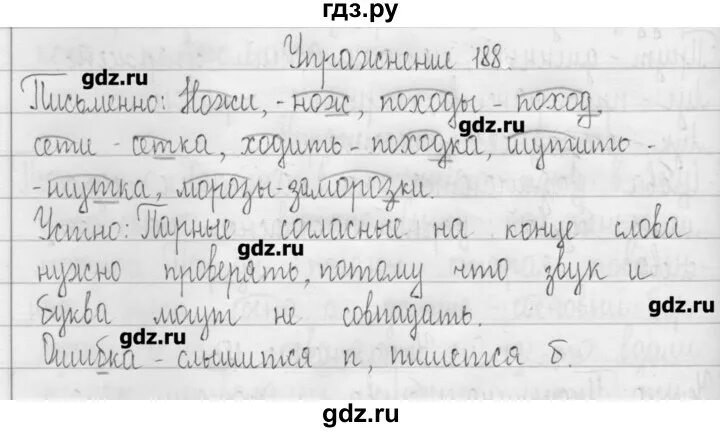 гдз.ру
Упражнение 188.
gdz.ru
Письменно: Ножи, - нож, походы - поход,
gdz.ru
сети - сетка, ходить - походка, шутить -
- шутка, морозы - заморозки.
Устно: Парные согласные на конце слова
gdz.ru
нужно проверять, потому что звук и
буква могут не совпадать.
gdz.ru
gdz.ru
Ошибка - слышится п, пишется б.
gdz.ru